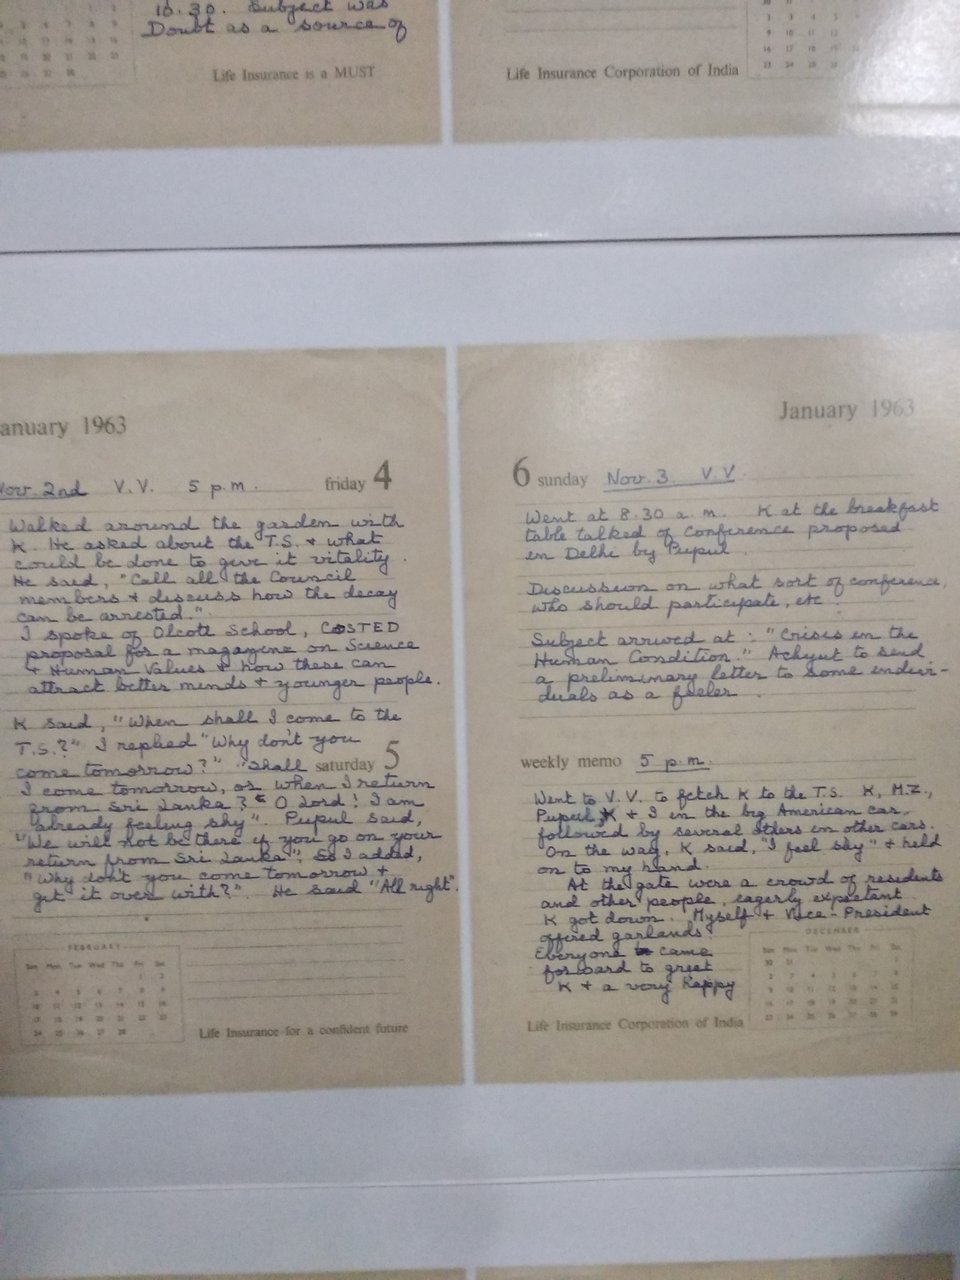 10.30. Subject was
Doubt as a source of
Life Insurance is a MUST
Life Insurance Corporation of India
anuary 1963
Nov. 2nd V.V. 5 p.m. friday 4
Walked around the garden with
K. He asked about the T.S. & what
could be done to give it vitality.
He said, "Call all the Council
members & discuss how the decay
can be arrested."
I spoke of Olcott School, COSTED
proposal for a magazine on Science
& Human Values & how these can
attract better minds & younger people.
K said, "When shall I come to the
T.S.?" I replied "Why don't you
come tomorrow?" "Shall saturday 5
I come tomorrow, or when I return
from Sri Lanka? O Lord! I am
already feeling shy". Pupul said,
"We will not be there if you go on your
return from Sri Lanka". So I added,
"Why don't you come tomorrow &
get it over with?". He said "All right".
FEBRUARY
Sun Mon Tue Wed Thu Fri Sat
1 2
3 4 5 6 7 8 9
10 11 12 13 14 15 16
17 18 19 20 21 22 23
24 25 26 27 28
Life Insurance for a confident future
January 1963
6 sunday Nov. 3. V.V.
Went at 8.30 a.m. K at the breakfast
table talked of Conference proposed
in Delhi by Pupul.
Discussion on what sort of conference,
who should participate, etc.
Subject arrived at : "Crisis in the
Human Condition." Achyut to send
a preliminary letter to some indivi-
duals as a feeler.
weekly memo 5 p.m.
Went to V.V. to fetch K to the T.S. K, M.Z.,
Pupul, & I in the big American car,
followed by several others in other cars.
On the way, K said, "I feel shy" & held
on to my hand.
At the gate were a crowd of residents
and other people, eagerly expectant.
K got down. Myself & Vice-President
offered garlands.
Everyone came
forward to greet
K & a very happy
DECEMBER
Sun Mon Tue Wed Thu Fri Sat
30 31 1
2 3 4 5 6 7 8
9 10 11 12 13 14 15
16 17 18 19 20 21 22
23 24 25 26 27 28 29
Life Insurance Corporation of India